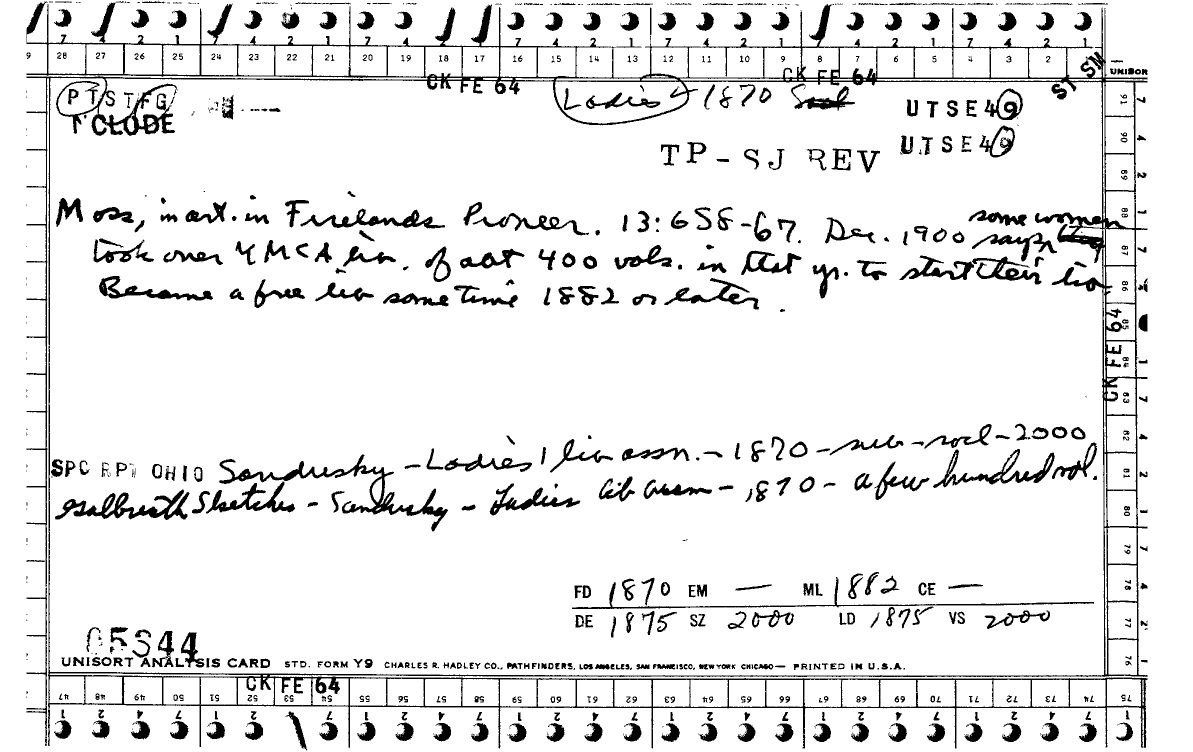 7 4 2 1 7 4 2 1 7 4 2 1 7 4 2 1 7 4 2 1 7 4 2 1 7 4 2 1
28 27 26 25 24 23 22 21 20 19 18 17 16 15 14 13 12 11 10 9 8 7 6 5 4 3 2 1
CK FE 64 CK FE 64 ST SN
UNISOR
PTSTFG Ladies' 1870 Socl UTSE49
CLODE UTSE49
TP-SJ REV
Moss, in art. in Firelands Pioneer. 13:658-67. Dec. 1900 says some women
took over YMCA lib. of abt 400 vols. in that yr. to start their lib
Became a free lib sometime 1882 or later.
CK FE 64
SPC RPT OHIO Sandusky - Ladies' lib assn. - 1870 - sub - socl - 2000
Galbreath Sketches - Sandusky - Ladies lib assm - 1870 - a few hundred vol.
FD 1870 EM — ML 1882 CE —
DE 1875 SZ 2000 LD 1875 VS 2000
05344
UNISORT ANALYSIS CARD STD. FORM Y9 CHARLES R. HADLEY CO., PATHFINDERS, LOS ANGELES, SAN FRANCISCO, NEW YORK CHICAGO — PRINTED IN U.S.A.
CK FE 64
47 48 49 50 51 52 53 54 55 56 57 58 59 60 61 62 63 64 65 66 67 68 69 70 71 72 73 74 75